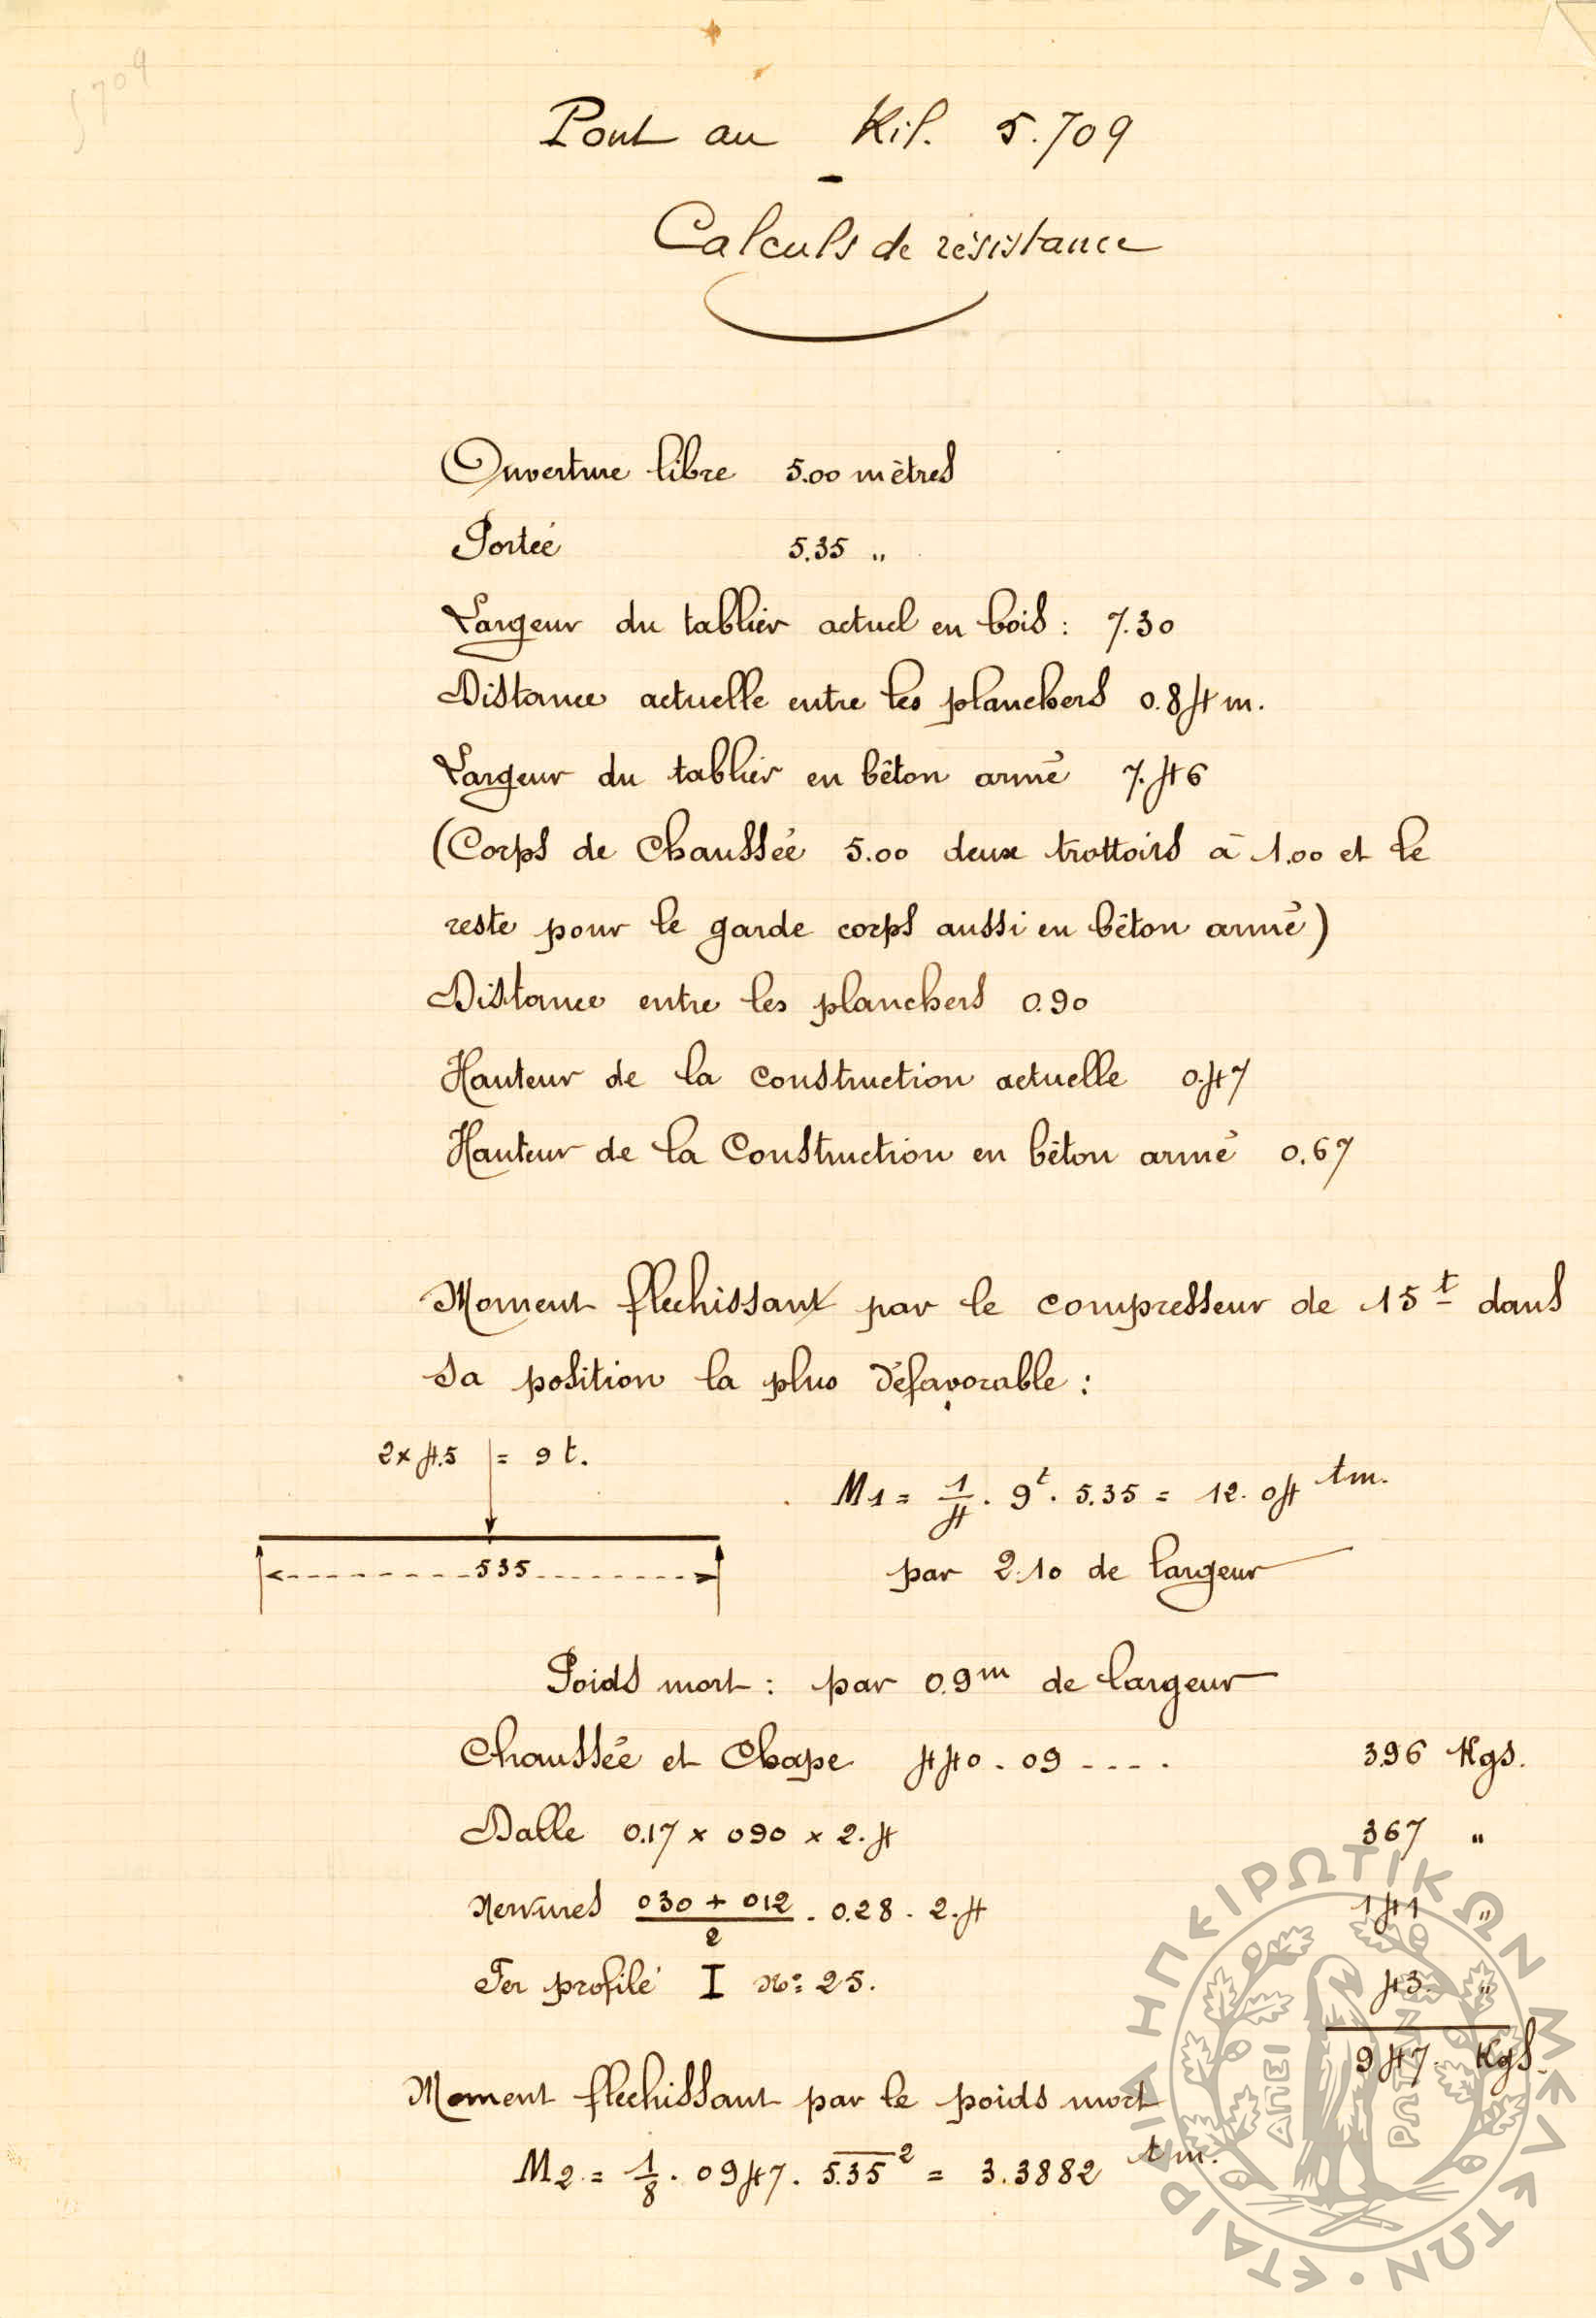 5709
Pont au Kil. 5.709
Calculs de résistance
Ouverture libre 5.00 mètres
Portée 5.35 "
Largeur du tablier actuel en bois : 7.30
Distance actuelle entre les planchers 0.84 m.
Largeur du tablier en bêton armé 7.46
(Corps de Chaussée 5.00 deux trottoirs à 1.00 et le
reste pour le garde corps aussi en bêton armé)
Distance entre les planchers 0.90
Hauteur de la construction actuelle 0.47
Hauteur de la Construction en bêton armé 0.67
Moment flechissant par le compresseur de 15 t dans
sa position la plus défavorable :
2 x 4.5 = 9 t.
M1 = 1/4 . 9t . 5.35 = 12.04 tm.
535
par 2.10 de largeur
Poids mort : par 0.9m de largeur
Chaussée et Chape 440 . 09 .... 396 Kgs.
Dalle 0.17 x 090 x 2.4 367 "
Nervures (030 + 012)/2 . 0.28 . 2.4 141 "
Fer profilé I No: 25. 43. "
947. Kgs.
Moment flechissant par le poids mort
M2 = 1/8 . 0947 . 5.35² = 3.3882 tm.
ΕΤΑΙΡΕΙΑ ΗΠΕΙΡΩΤΙΚΩΝ ΜΕΛΕΤΩΝ
ΑΠΕΙ ΡΩΤΑΝ